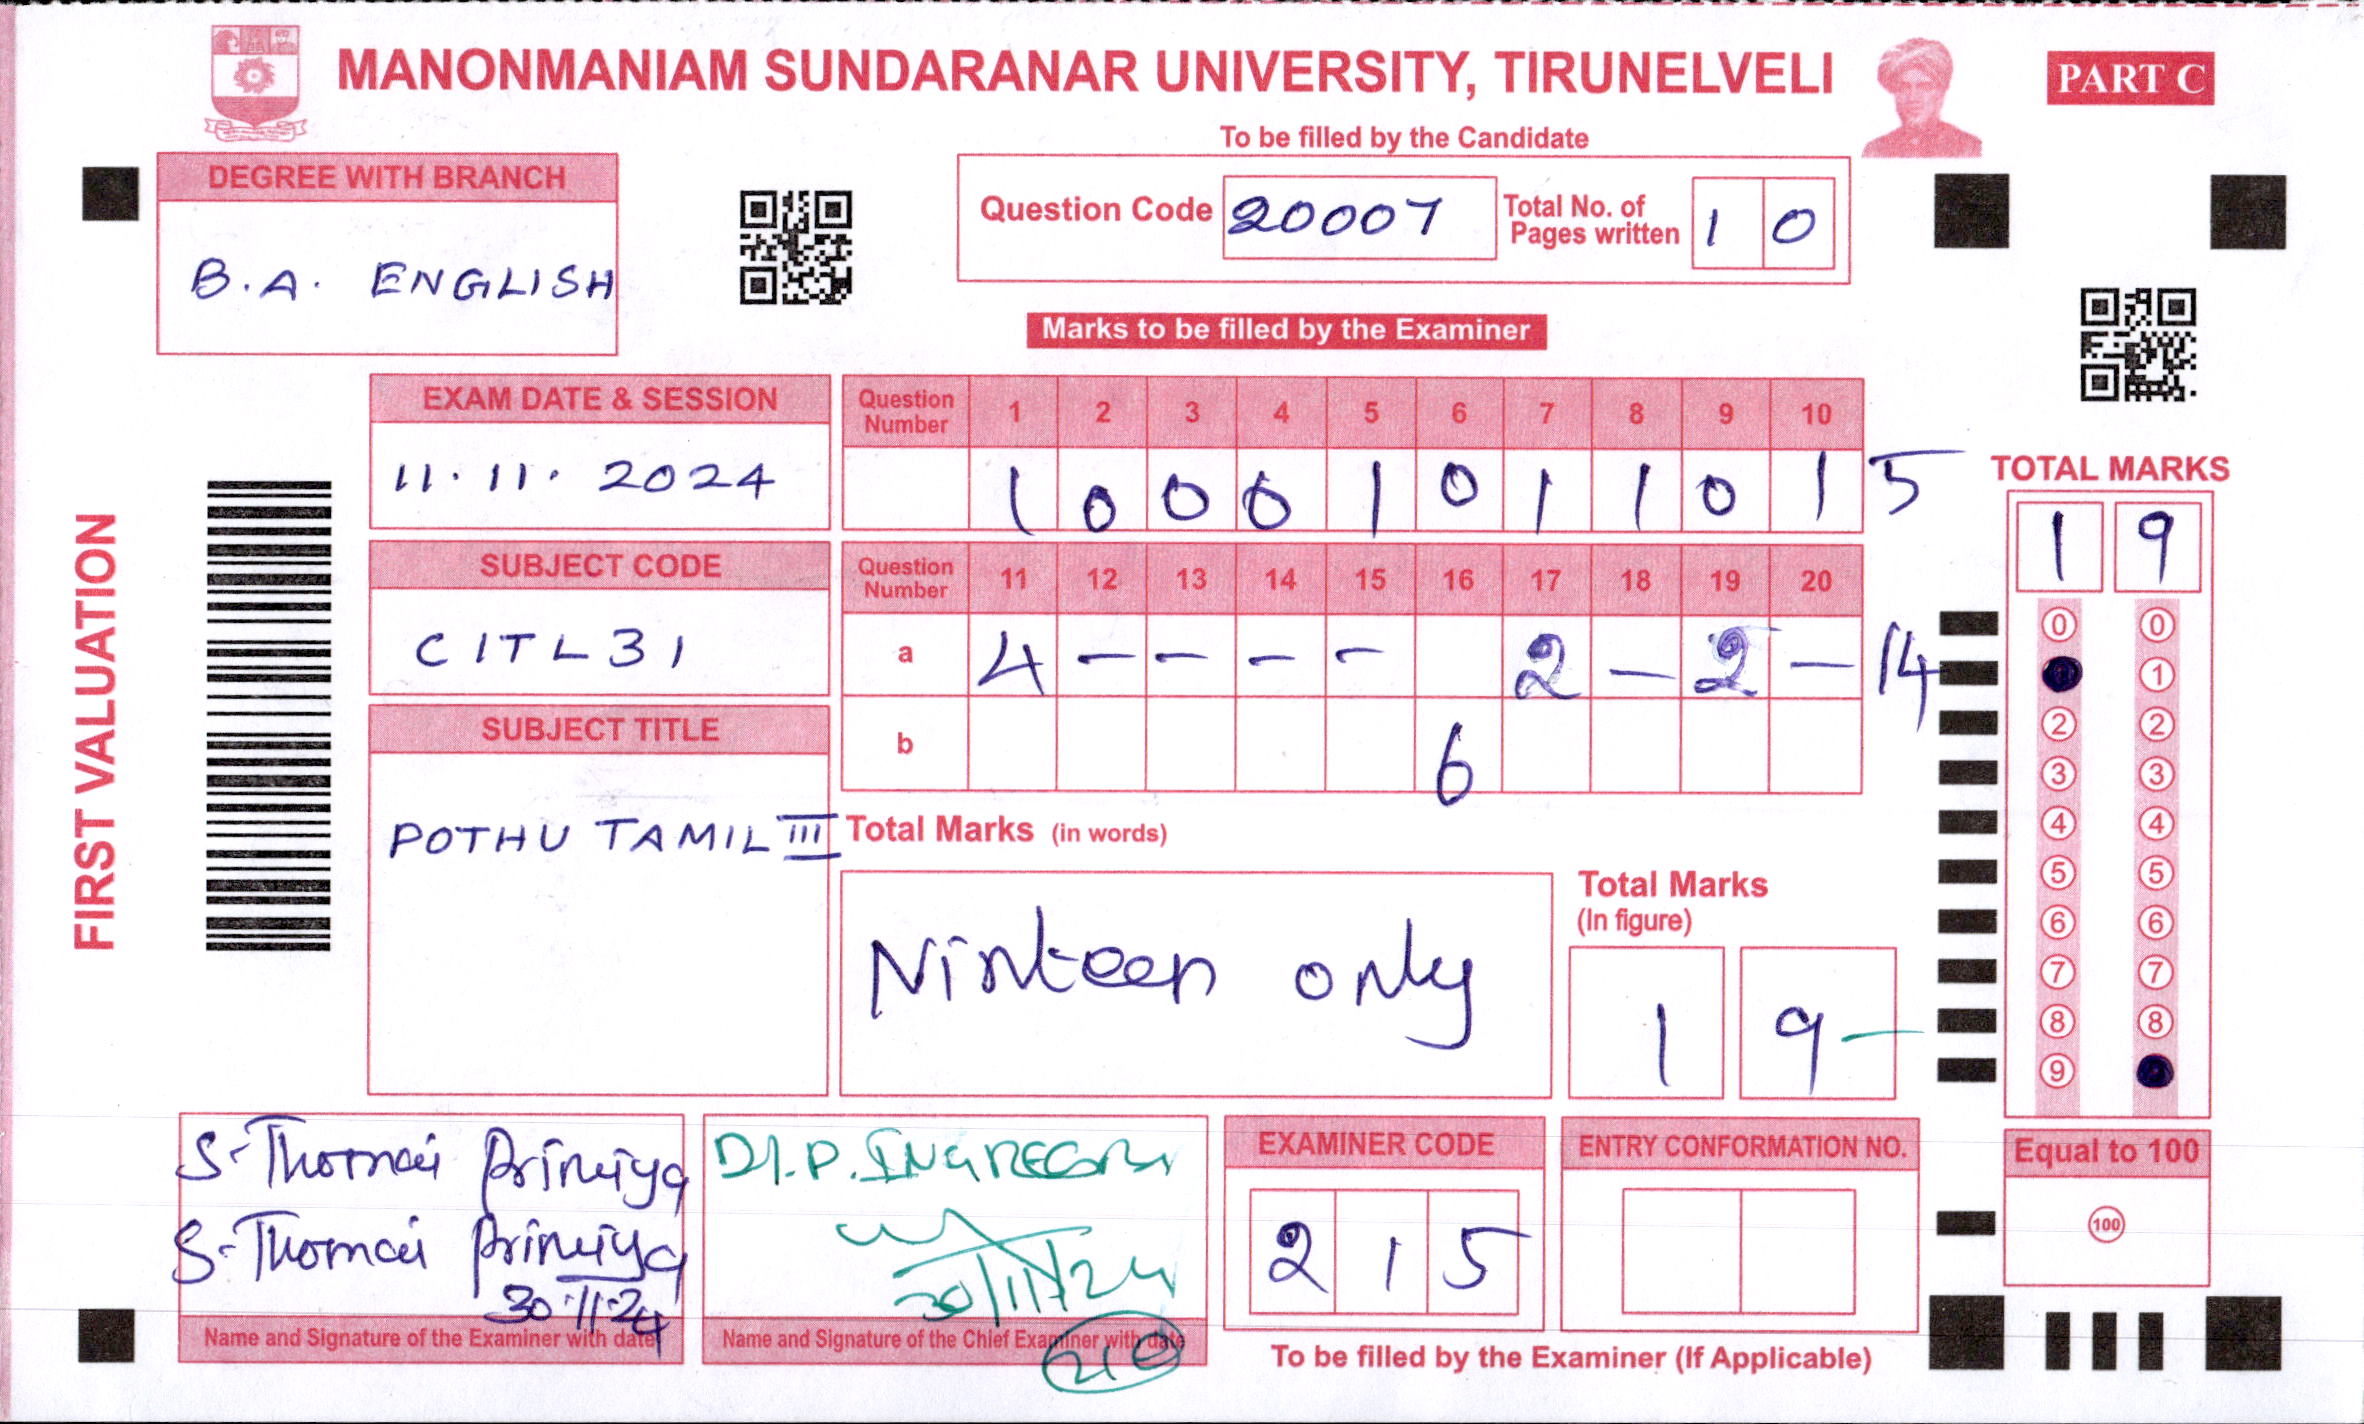 MANONMANIAM SUNDARANAR UNIVERSITY, TIRUNELVELI
PART C
To be filled by the Candidate
DEGREE WITH BRANCH
B.A. ENGLISH
Question Code 20007 Total No. of Pages written 1 0
Marks to be filled by the Examiner
FIRST VALUATION
EXAM DATE & SESSION
11.11.2024
SUBJECT CODE
CITL31
SUBJECT TITLE
POTHU TAMIL III
Question Number 1 2 3 4 5 6 7 8 9 10
1 0 0 0 1 0 1 1 0 1 5
Question Number 11 12 13 14 15 16 17 18 19 20
a 4 – – – – 2 – 2 – 14
b 6
Total Marks (in words)
Ninteen only
Total Marks
(In figure)
1 9
TOTAL MARKS
1 9
0 0
1
2 2
3 3
4 4
5 5
6 6
7 7
8 8
9
Equal to 100
100
S. Thomai Priniya
S. Thomai Priniya
30.11.24
Name and Signature of the Examiner with date
30/11/24
Name and Signature of the Chief Examiner with date
EXAMINER CODE
2 1 5
ENTRY CONFORMATION NO.
To be filled by the Examiner (If Applicable)